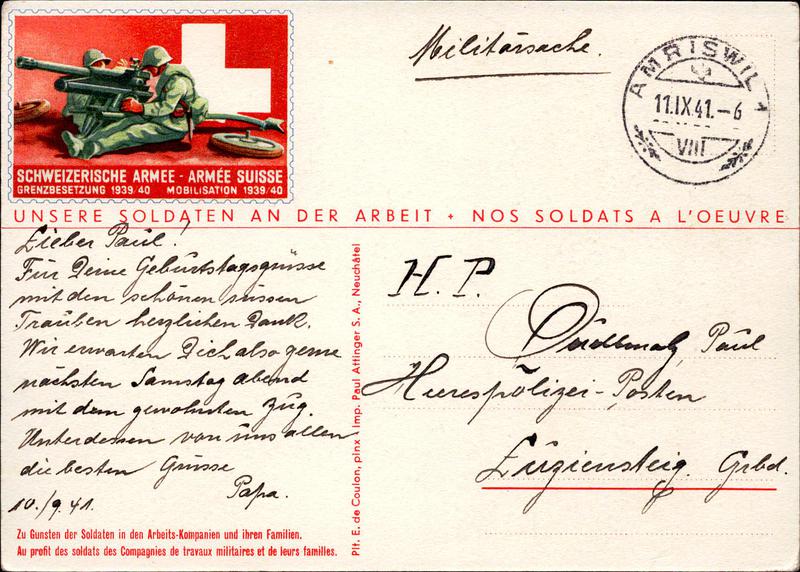 SCHWEIZERISCHE ARMEE - ARMÉE SUISSE
GRENZBESETZUNG 1939/40 MOBILISATION 1939/40
Militärsache.
AMRISWIL 1
11.IX.41.-6
VIII
UNSERE SOLDATEN AN DER ARBEIT + NOS SOLDATS A L'OEUVRE
Lieber Paul!
Für Deine Geburtstagsgrüsse
mit den schönen süssen
Trauben herzlichen Dank.
Wir erwarten Dich also gerne
nächsten Samstag abend
mit dem gewohnten Zug.
Unterdessen von uns allen
die besten Grüsse
Papa.
10./9.41.
Zu Gunsten der Soldaten in den Arbeits-Kompanien und ihren Familien.
Au profit des soldats des Compagnies de travaux militaires et de leurs familles.
Plt. E. de Coulon, pinx - Imp. Paul Attinger S. A., Neuchâtel
H. P.
Paul
Heerespolizei-Posten
Luziensteig. Grbd.